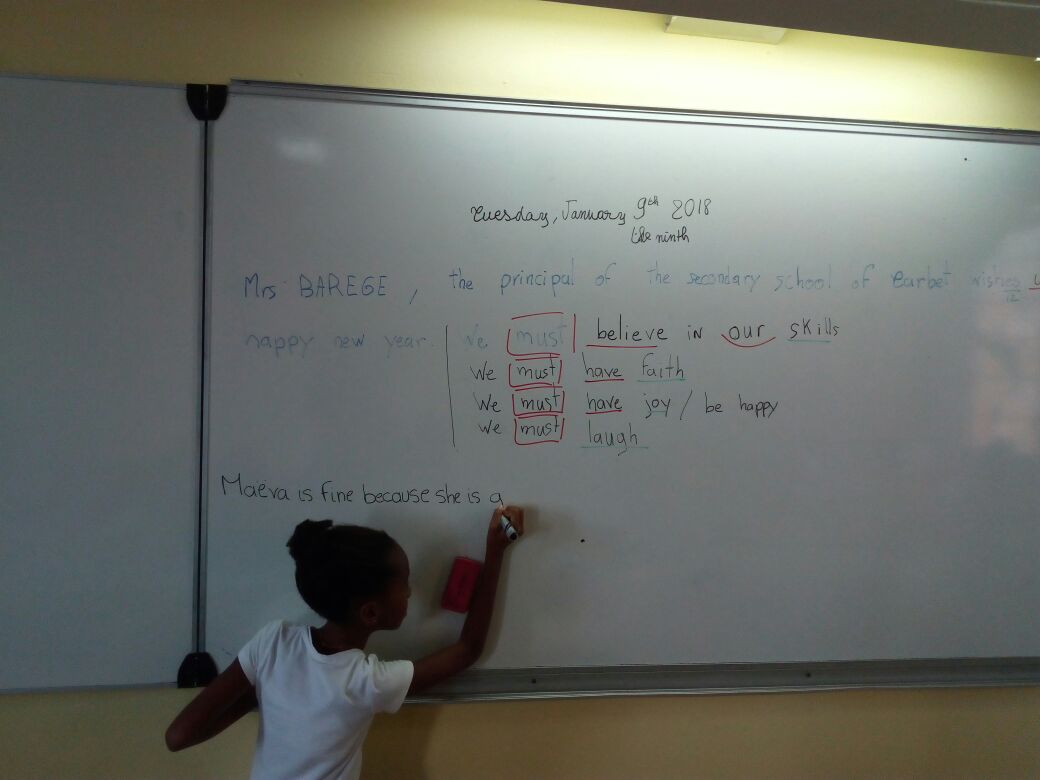 Tuesday, January 9th 2018
the ninth
Mrs BAREGE, the principal of the secondary school of Carbet wishes
12
happy new year. We must believe in our skills
We must have faith
We must have joy / be happy
We must laugh
Maëva is fine because she is a